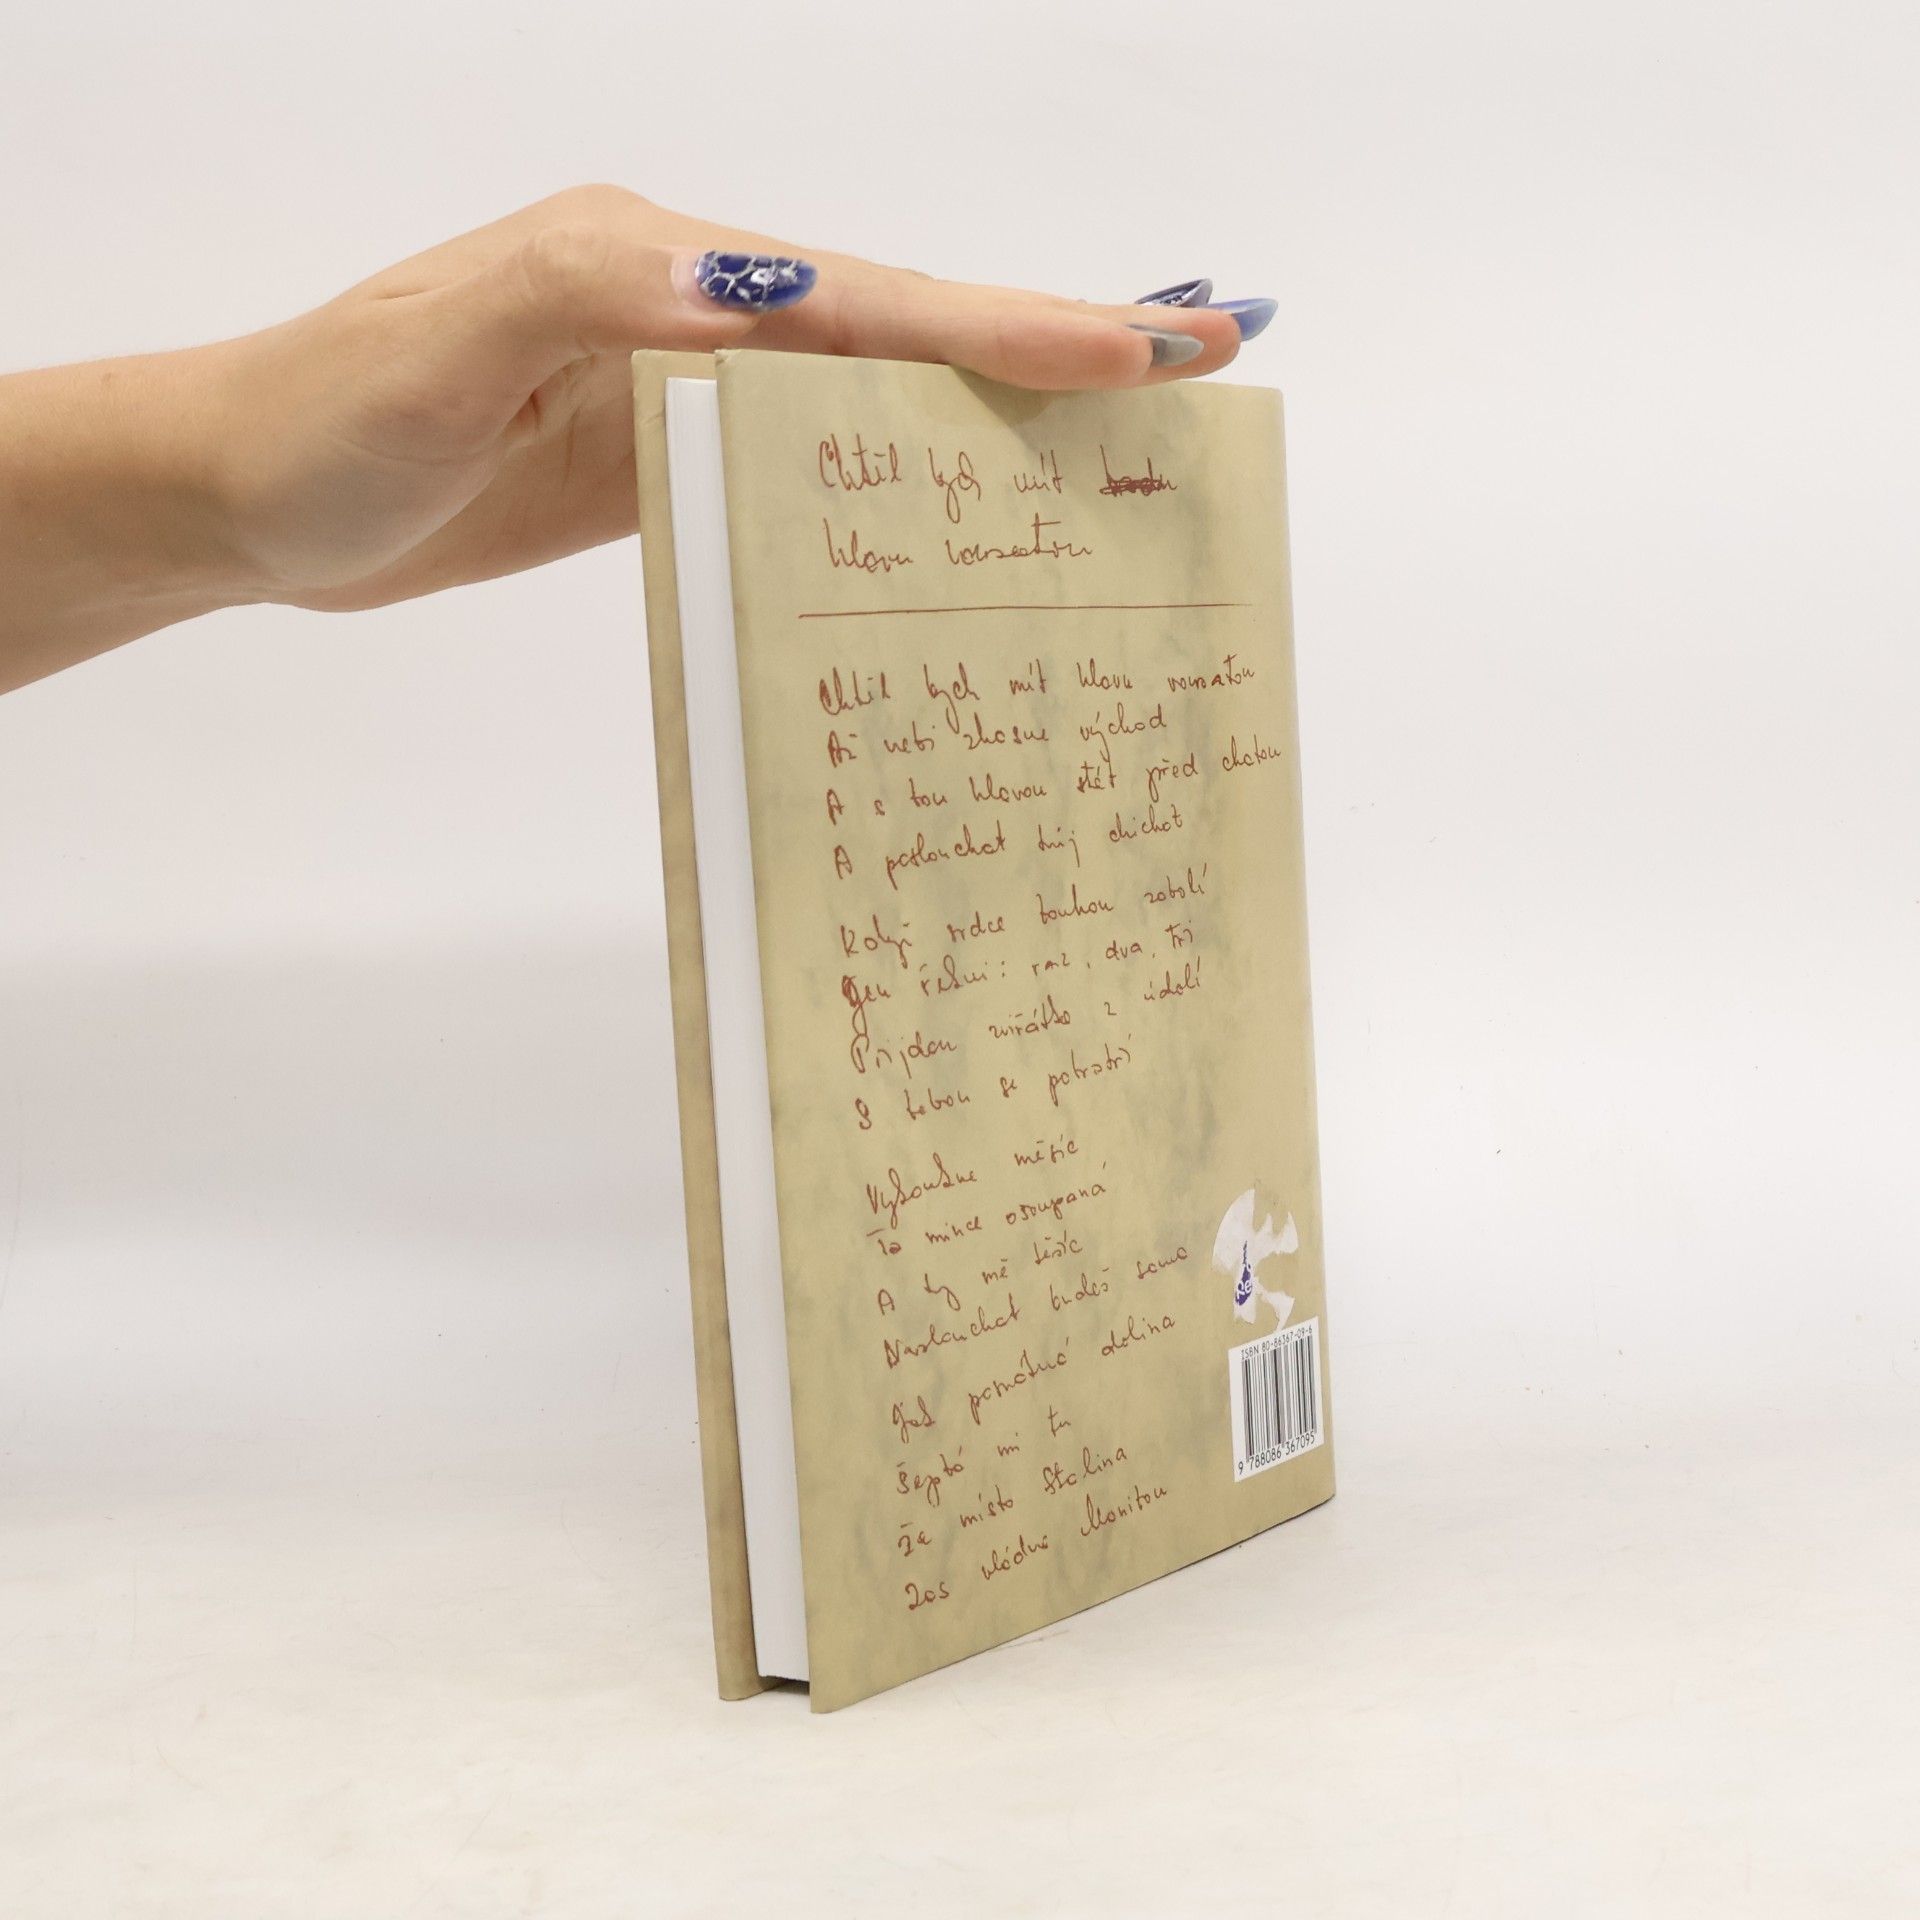 Chtěl bych mít
hlavu vousatou
Chtěl bych mít hlavu vousatou
Až nebi zhasne východ
A s tou hlavou stát před chatou
A poslouchat tvůj chichot
Když srdce touhou zabolí
Jen řekni: raz, dva, tři
Přijdou zvířátka z údolí
S tebou se potratří
Vykoukne měsíc
Ta mince osoupaná
A ty mě těšíc
Naslouchat budeš sama
Jak památná dolina
Šeptá mi tu
Že místo Stalina
Zas vládne Manitou
Re
ISBN 80-86367-09-6
9 788086 367095